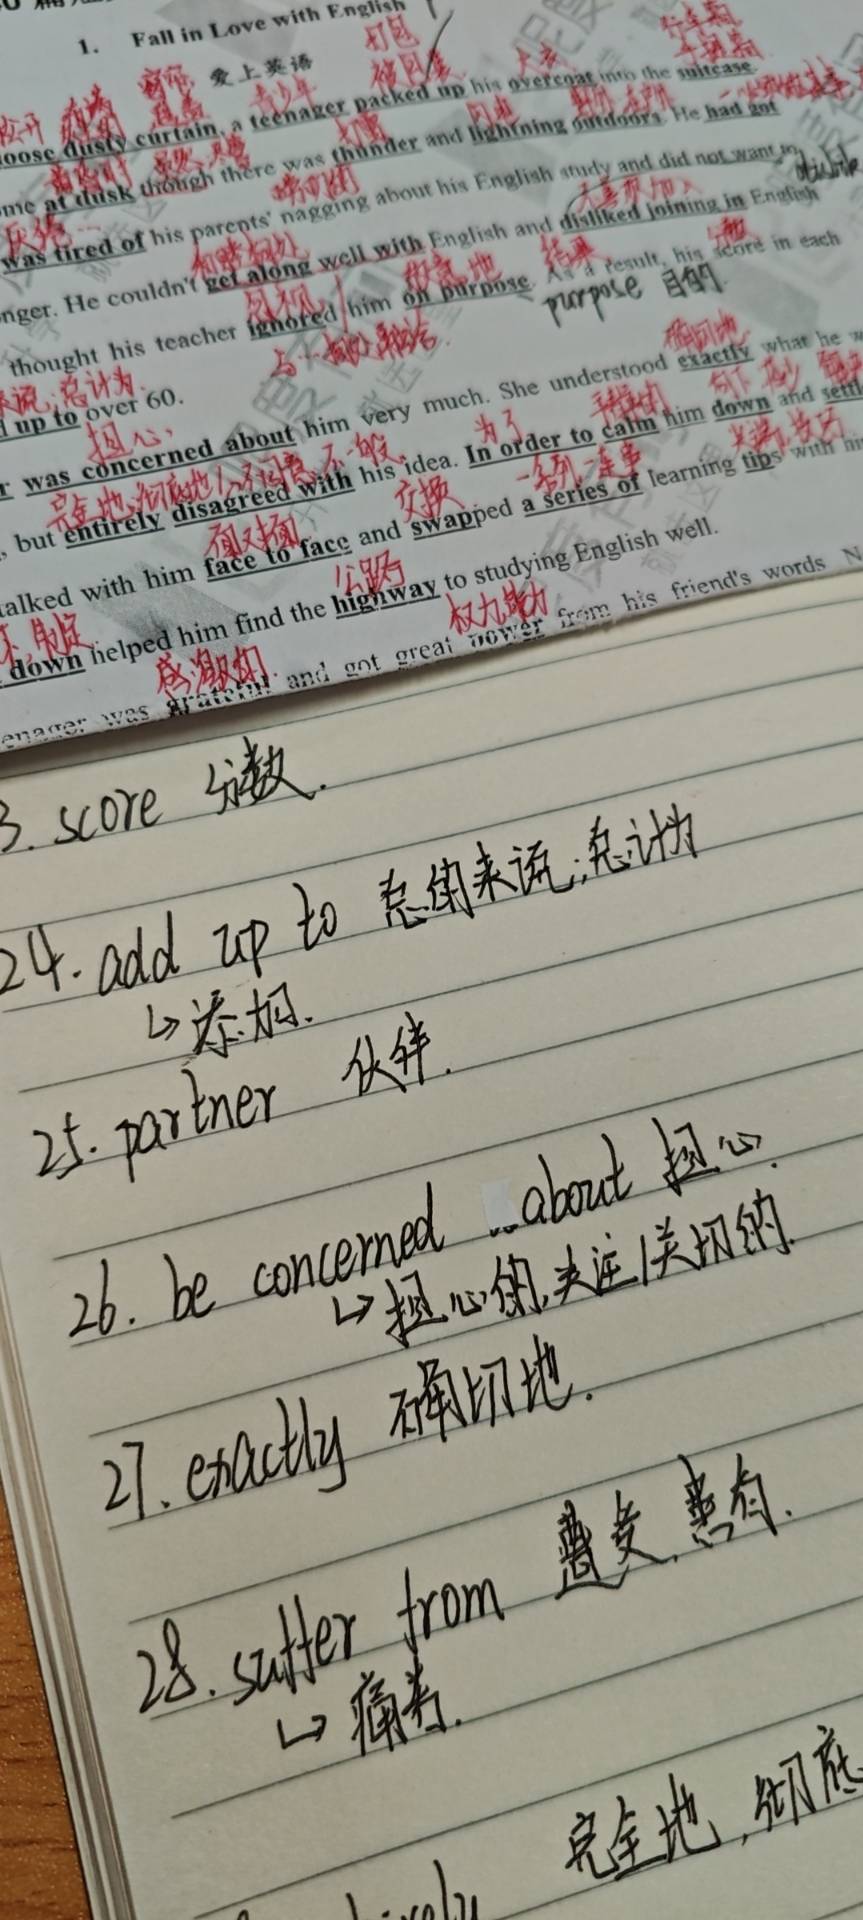 1. Fall in Love with English
爱上英语
打包
行李箱
大衣
青少年
dusty curtain, a teenager packed up his overcoat into the suitcase
at dusk though there was thunder and lightning outdoors. He had got
was tired of his parents' nagging about his English study and did not want to
dislike
disliked joining in English
nger. He couldn't get along well with English and
结果
分数
thought his teacher ignored him on purpose. As a result, his score in each
purpose 目的
总计为
up to over 60.
担心
确切地
was concerned about him very much. She understood exactly what he w
为了
完全地,彻底地
, but entirely disagreed with his idea. In order to calm him down and settl
面对面
交换
一系列,一连串
alked with him face to face and swapped a series of learning tips with
公路
down helped him find the highway to studying English well.
感激的
enager was grateful and got great power from his friend's words
3. score 分数.
24. add up to 总的来说;总计为
↳添加.
25. partner 伙伴.
26. be concerned about 担心.
↳担心的,关注/关切的.
27. exactly 确切地.
28. suffer from 遭受,患有.
↳痛苦.
完全地,彻底